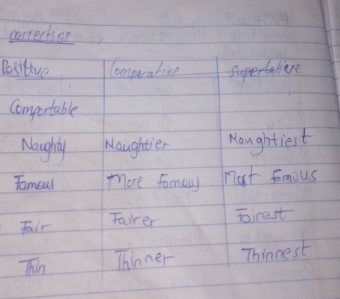 correction
Positive Comparative Superlative
Comfortable
Naughty Naughtier Naughtiest
Famous More Famous Most Famous
Fair Fairer Fairest
Thin Thinner Thinnest